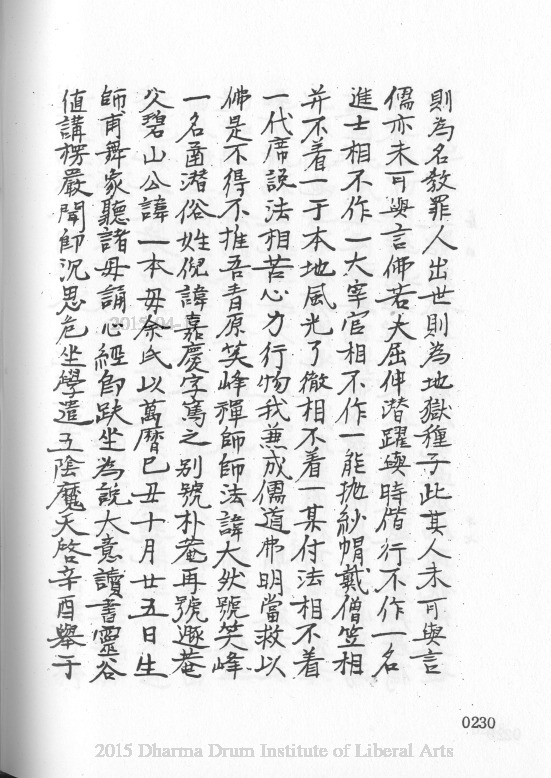 則為名教罪人出世則為地獄種子此其人未可與言
儒亦未可與言佛若夫屈伸潛躍與時偕行不作一名
進士相不作一大宰官相不作一能拋紗帽戴僧笠相
并不着一于本地風光了徹相不着一某付法相不着
一代席說法相苦心力行物我兼成儒道弗明當救以
佛是不得不推吾青原笑峰禪師師法諱大狀號笑峰
一名圅潜俗姓倪諱嘉慶字篤之別號朴菴再號遯菴
父碧山公諱一本母余氏以萬曆己丑十月廿五日生
師甫舞家聽諸母誦心經即趺坐為說大意讀書靈谷
值講楞嚴聞即沉思危坐學遣五陰魔天啓辛酉舉于
0230
2015 Dharma Drum Institute of Liberal Arts